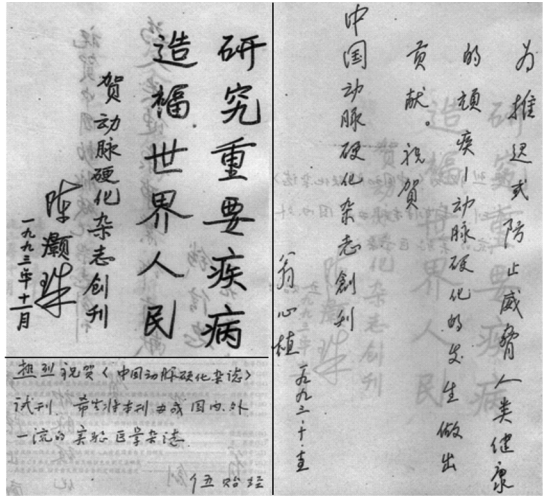 研究重要疾病
造福世界人民
贺动脉硬化杂志创刊
陈灏珠
一九九三年十一月
热烈祝贺《中国动脉硬化杂志》
试刊
国内外
一流的
医学杂志
为推迟或防止威胁人类健康
的顽疾—动脉硬化的发生做出
贡献。祝贺
中国动脉硬化杂志創刊
翁心植
一九九三·十·